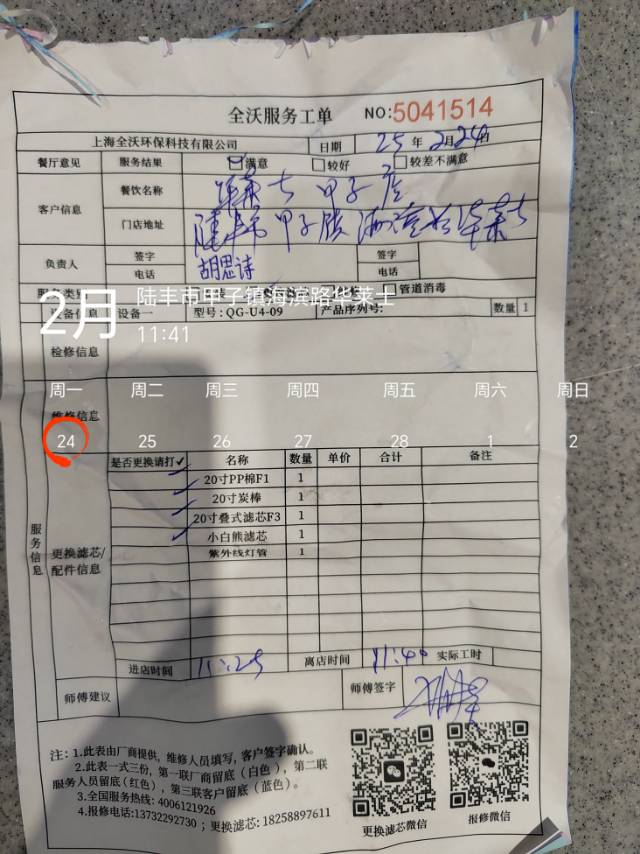 全沃服务工单 NO:5041514
上海全沃环保科技有限公司 日期 25年2月24日
餐厅意见 服务结果 满意 较好 较差不满意
客户信息 餐饮名称 华莱士 甲子店
门店地址 陆丰市甲子镇海滨路华莱士
负责人 签字 胡思诗 签字
电话 电话
服务类别 管道消毒
2月 陆丰市甲子镇海滨路华莱士
11:41
设备信息 设备一 型号:QG-U4-09 产品序列号: 数量 1
检修信息
周一 周二 周三 周四 周五 周六 周日
维修信息
24 25 26 27 28 1 2
是否更换请打✓ 名称 数量 单价 合计 备注
✓ 20寸PP棉F1 1
✓ 20寸炭棒 1
✓ 20寸叠式滤芯F3 1
✓ 小白熊滤芯 1
紫外线灯管 1
服务信息
更换滤芯/
配件信息
进店时间 11:25 离店时间 11:40 实际工时
师傅建议 师傅签字
注:1.此表由厂商提供,维修人员填写,客户签字确认。
2.此表一式三份,第一联厂商留底(白色),第二联
服务人员留底(红色),第三联客户留底(蓝色)。
3.全国服务热线:4006121926
4.报修电话:13732292730;更换滤芯:18258897611
更换滤芯微信 报修微信